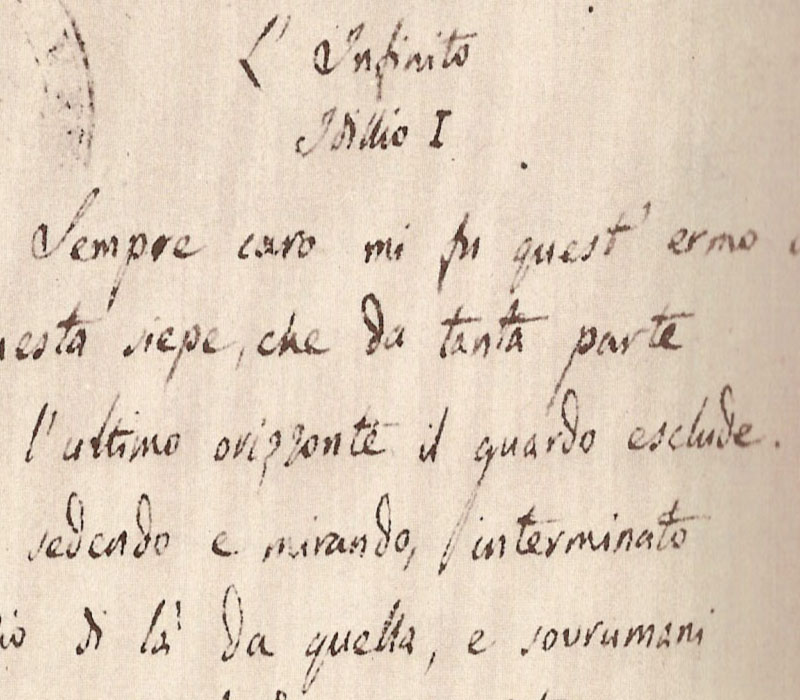 L' Infinito
Idillio I
Sempre caro mi fu quest' ermo
siepe, che da tanta parte
l'ultimo orizzonte il guardo esclude.
sedendo e mirando, interminato
di là da quella, e sovrumani